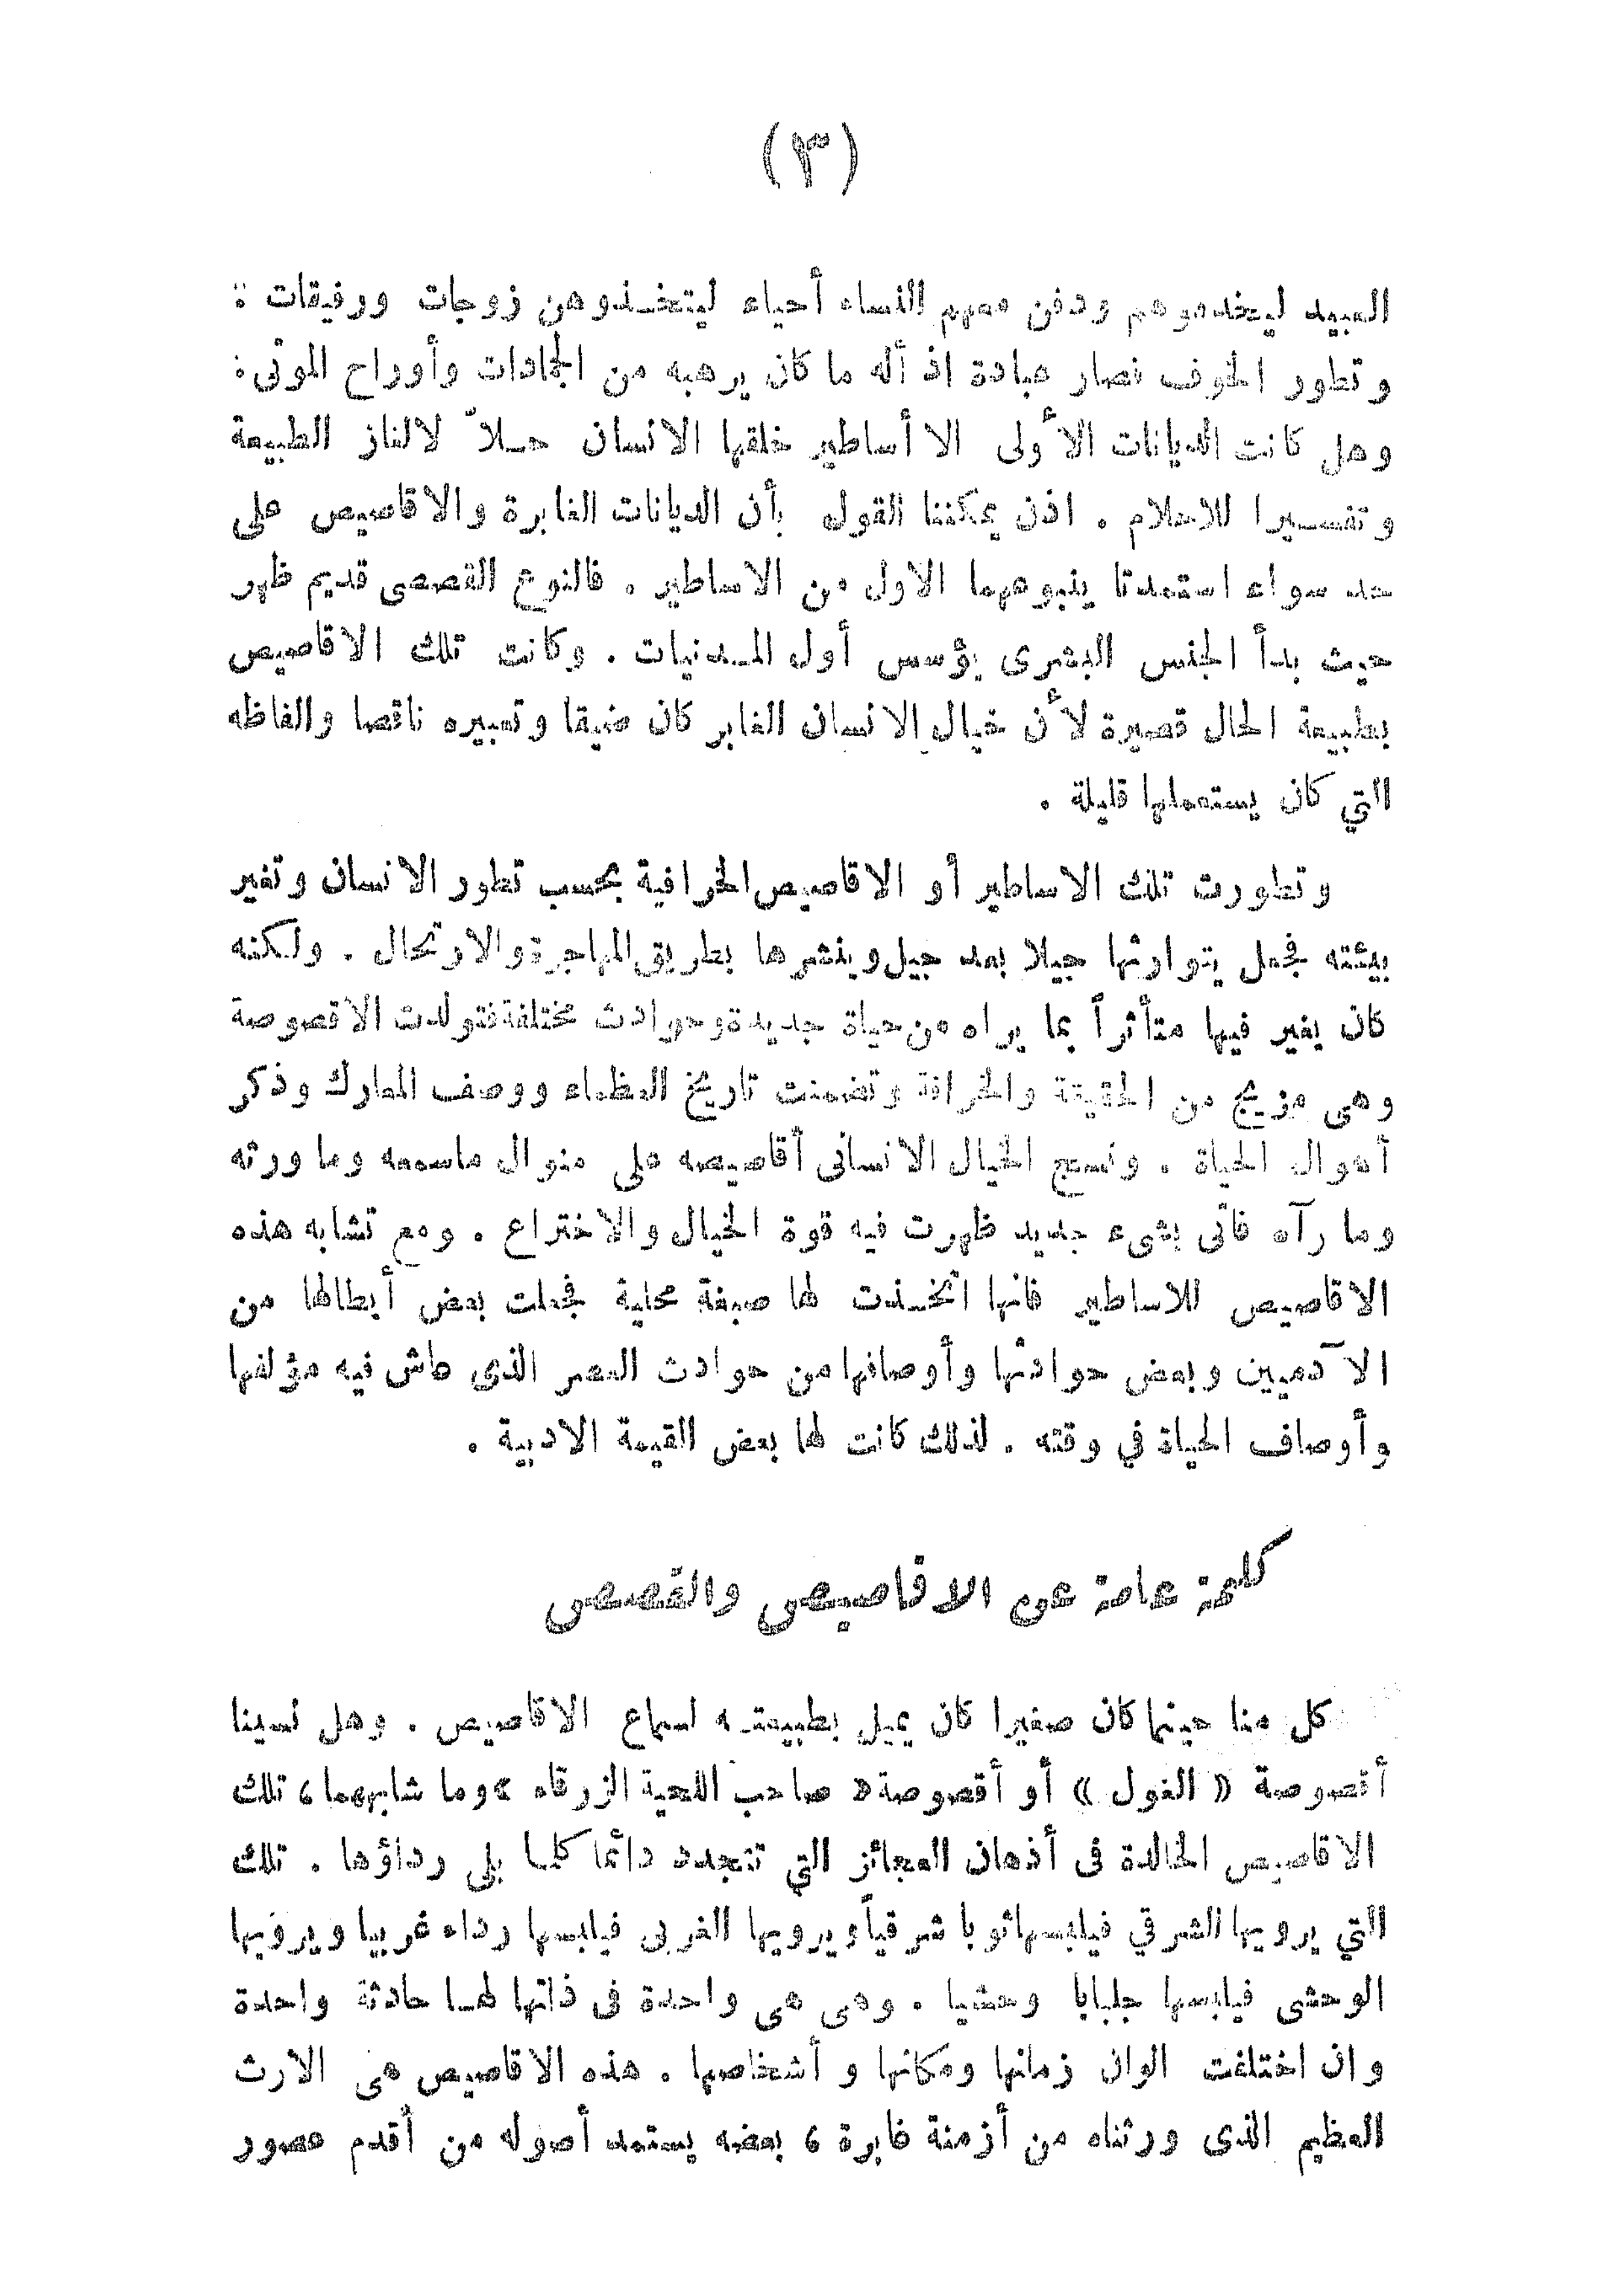 (٣)
العبيد ليخدموهم ودفن معهم النساء أحياء ليتخذوهن زوجات ورفيقات :
وتطور الخوف فصار عبادة اذ أله ما كان يرهبه من الجمادات وأوراح الموتى :
وهل كانت الديانات الأولى الا أساطير خلقها الانسان حلاّ لالغاز الطبيعة
وتفسيرا للاحلام . اذن يمكننا القول بأن الديانات الغابرة والاقاصيص على
حد سواء استمدتا ينبوعهما الاول من الاساطير . فالنوع القصصى قديم ظهر
حيث بدأ الجنس البشرى يؤسس أول المدنيات . وكانت تلك الاقاصيص
بطبيعة الحال قصيرة لأن خيال الانسان الغابر كان ضيقا وتعبيره ناقصا والفاظه
التي كان يستعملها قليلة .
وتطورت تلك الاساطير أو الاقاصيص الخرافية بحسب تطور الانسان وتغير
بيئته فجعل يتوارثها جيلا بعد جيل وينشرها بطريق المهاجرة والارتحال . ولكنه
كان يغير فيها متأثراً بما يراه من حياة جديدة وحوادث مختلفة فتولدت الاقصوصة
وهى مزيج من الحقيقة والخرافة وتضمنت تاريخ العظماء ووصف المعارك وذكر
أهوال الحياة . ونسج الخيال الانسانى أقاصيصه على منوال ماسمعه وما ورثه
وما رآه فاتى بشىء جديد ظهرت فيه قوة الخيال والاختراع . ومع تشابه هذه
الاقاصيص للاساطير فانها اتخذت لها صبغة محلية فجعلت بعض أبطالها من
الآدميين وبعض حوادثها وأوصافها من حوادث العصر الذى عاش فيه مؤلفها
وأوصاف الحياة في وقته . لذلك كانت لها بعض القيمة الادبية .
كلمة عامة عن الاقاصيص والقصص
كل منا حينما كان صغيرا كان يميل بطبيعته لسماع الاقاصيص . وهل نسينا
أقصوصة « الغول » أو أقصوصة « صاحب اللحية الزرقاء » وما شابههما ، تلك
الاقاصيص الخالدة فى أذهان العجائز التي تتجدد دائما كلما بلى رداؤها . تلك
التي يرويها الشرقي فيلبسها ثوبا شرقياً ويرويها الغربى فيلبسها رداء غربيا ويرويها
الوحشى فيلبسها جلبابا وحشيا . وهى هى واحدة فى ذاتها لها حادثة واحدة
وان اختلفت الوان زمانها ومكانها و أشخاصها . هذه الاقاصيص هى الارث
العظيم الذى ورثناه من أزمنة غابرة ، بعضه يستمد أصوله من أقدم عصور